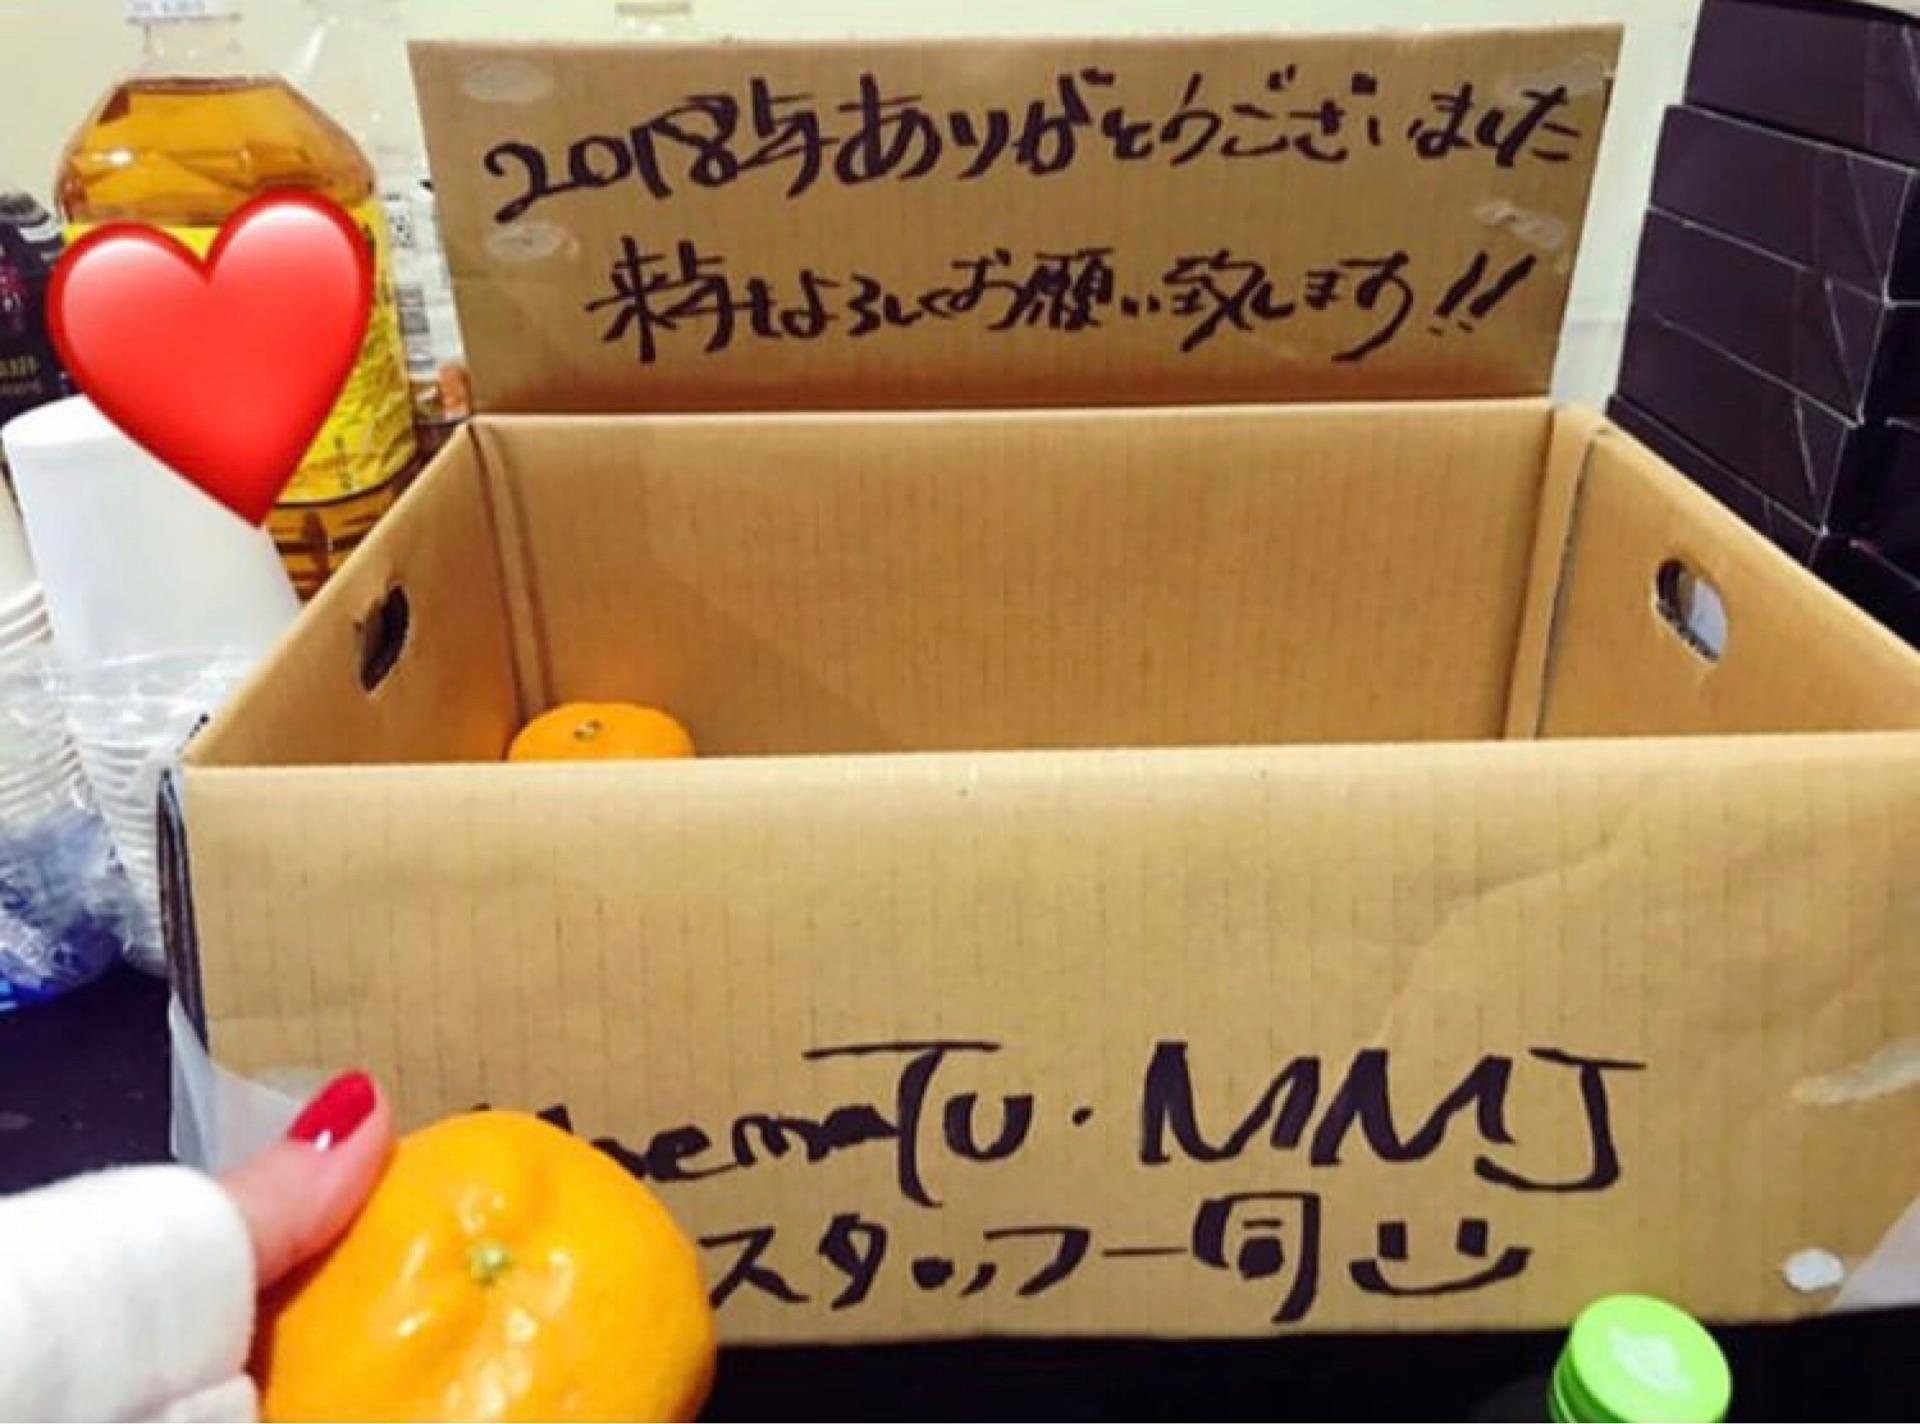 2018年ありがとうございました
来年もよろしくお願い致します!!
TU・MMJ
スタッフ一同